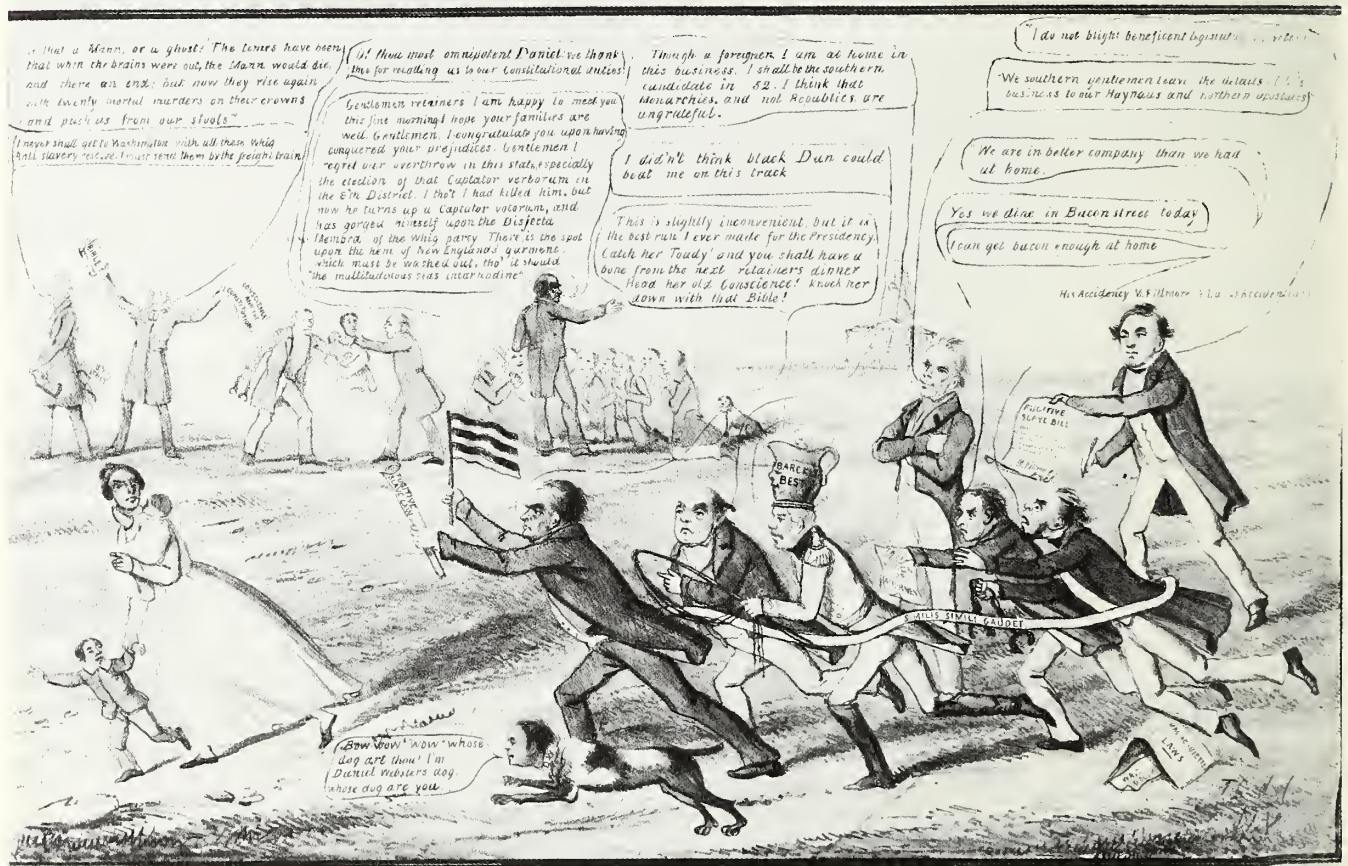 that a Mann, or a ghost! The times have been
that when the brains were out, the Mann would die,
and there an end; but now they rise again
with twenty mortal murders on their crowns
and push us from our stools"
I never shall get to Washington with all these Whig
Anti slavery I must send them by the freight train
O! thou most omnipotent Daniel we thank
thee for recalling us to our Constitutional duties!
Gentlemen retainers I am happy to meet you
this fine morning I hope your families are
well. Gentlemen, I congratulate you upon having
conquered your prejudices. Gentlemen I
regret our overthrow in this state, especially
the election of that Captator verborum in
the 8th District. I tho't I had killed him, but
now he turns up a Captator vocorum, and
has gorged himself upon the Disjecta
Membra of the Whig party There, is the spot
upon the hem of New England's garment,
which must be washed out, tho' it should
"the multitudinous seas incarnadine"
Though a foreigner I am at home in
this business. I shall be the southern
candidate in 52. I think that
Monarchies, and not Republics are
ungrateful.
I didn't think black Dan could
beat me on this track
This is slightly inconvenient, but it is
the best run I ever made for the Presidency.
Catch her 'Toady' and you shall have a
bone from the next retainers dinner
Head her old Conscience! knock her
down with that Bible!
"I do not blight beneficent
"We southern gentlemen leave the details
business to our Haynaus and northern apostates"
"We are in better company than we had
at home.
Yes we dine in Bacon street today
I can get bacon enough at home
His Accidency M. Fillmore
BIBLE
CONSCIENCE
AND THE
CONSTITUTION
FUGITIVE
SLAVE BILL
FUGITIVE
SLAVE LAW
BEST
SIMILIS SIMILI GAUDET
Bow wow wow whose
dog art thou? I'm
Daniel Websters dog.
whose dog are you
LAWS